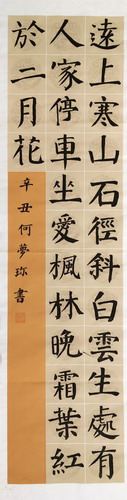 遠上寒山石徑斜白雲生處有
人家停車坐愛楓林晚霜葉紅
於二月花
辛丑何夢珎書